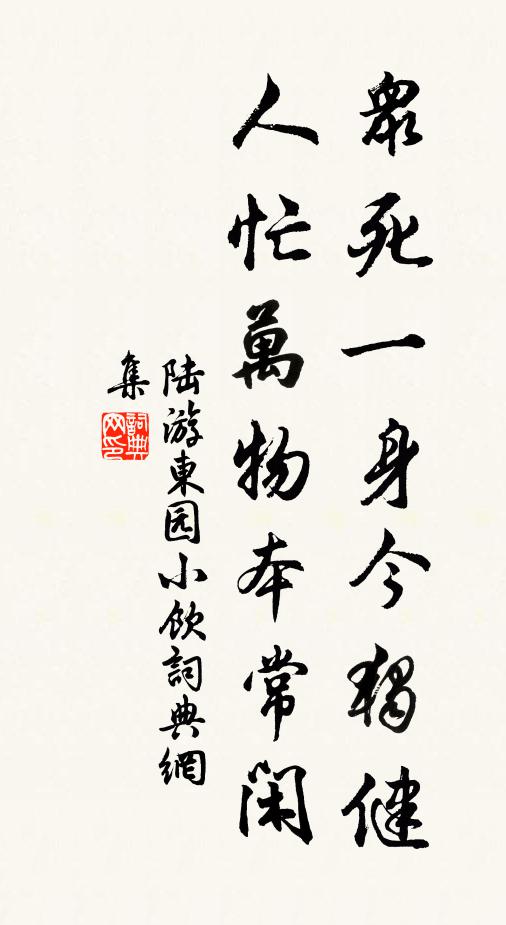 眾死一身今獨健
人忙萬物本常閑
陆游東园小飲詞典網
集
詞典网印